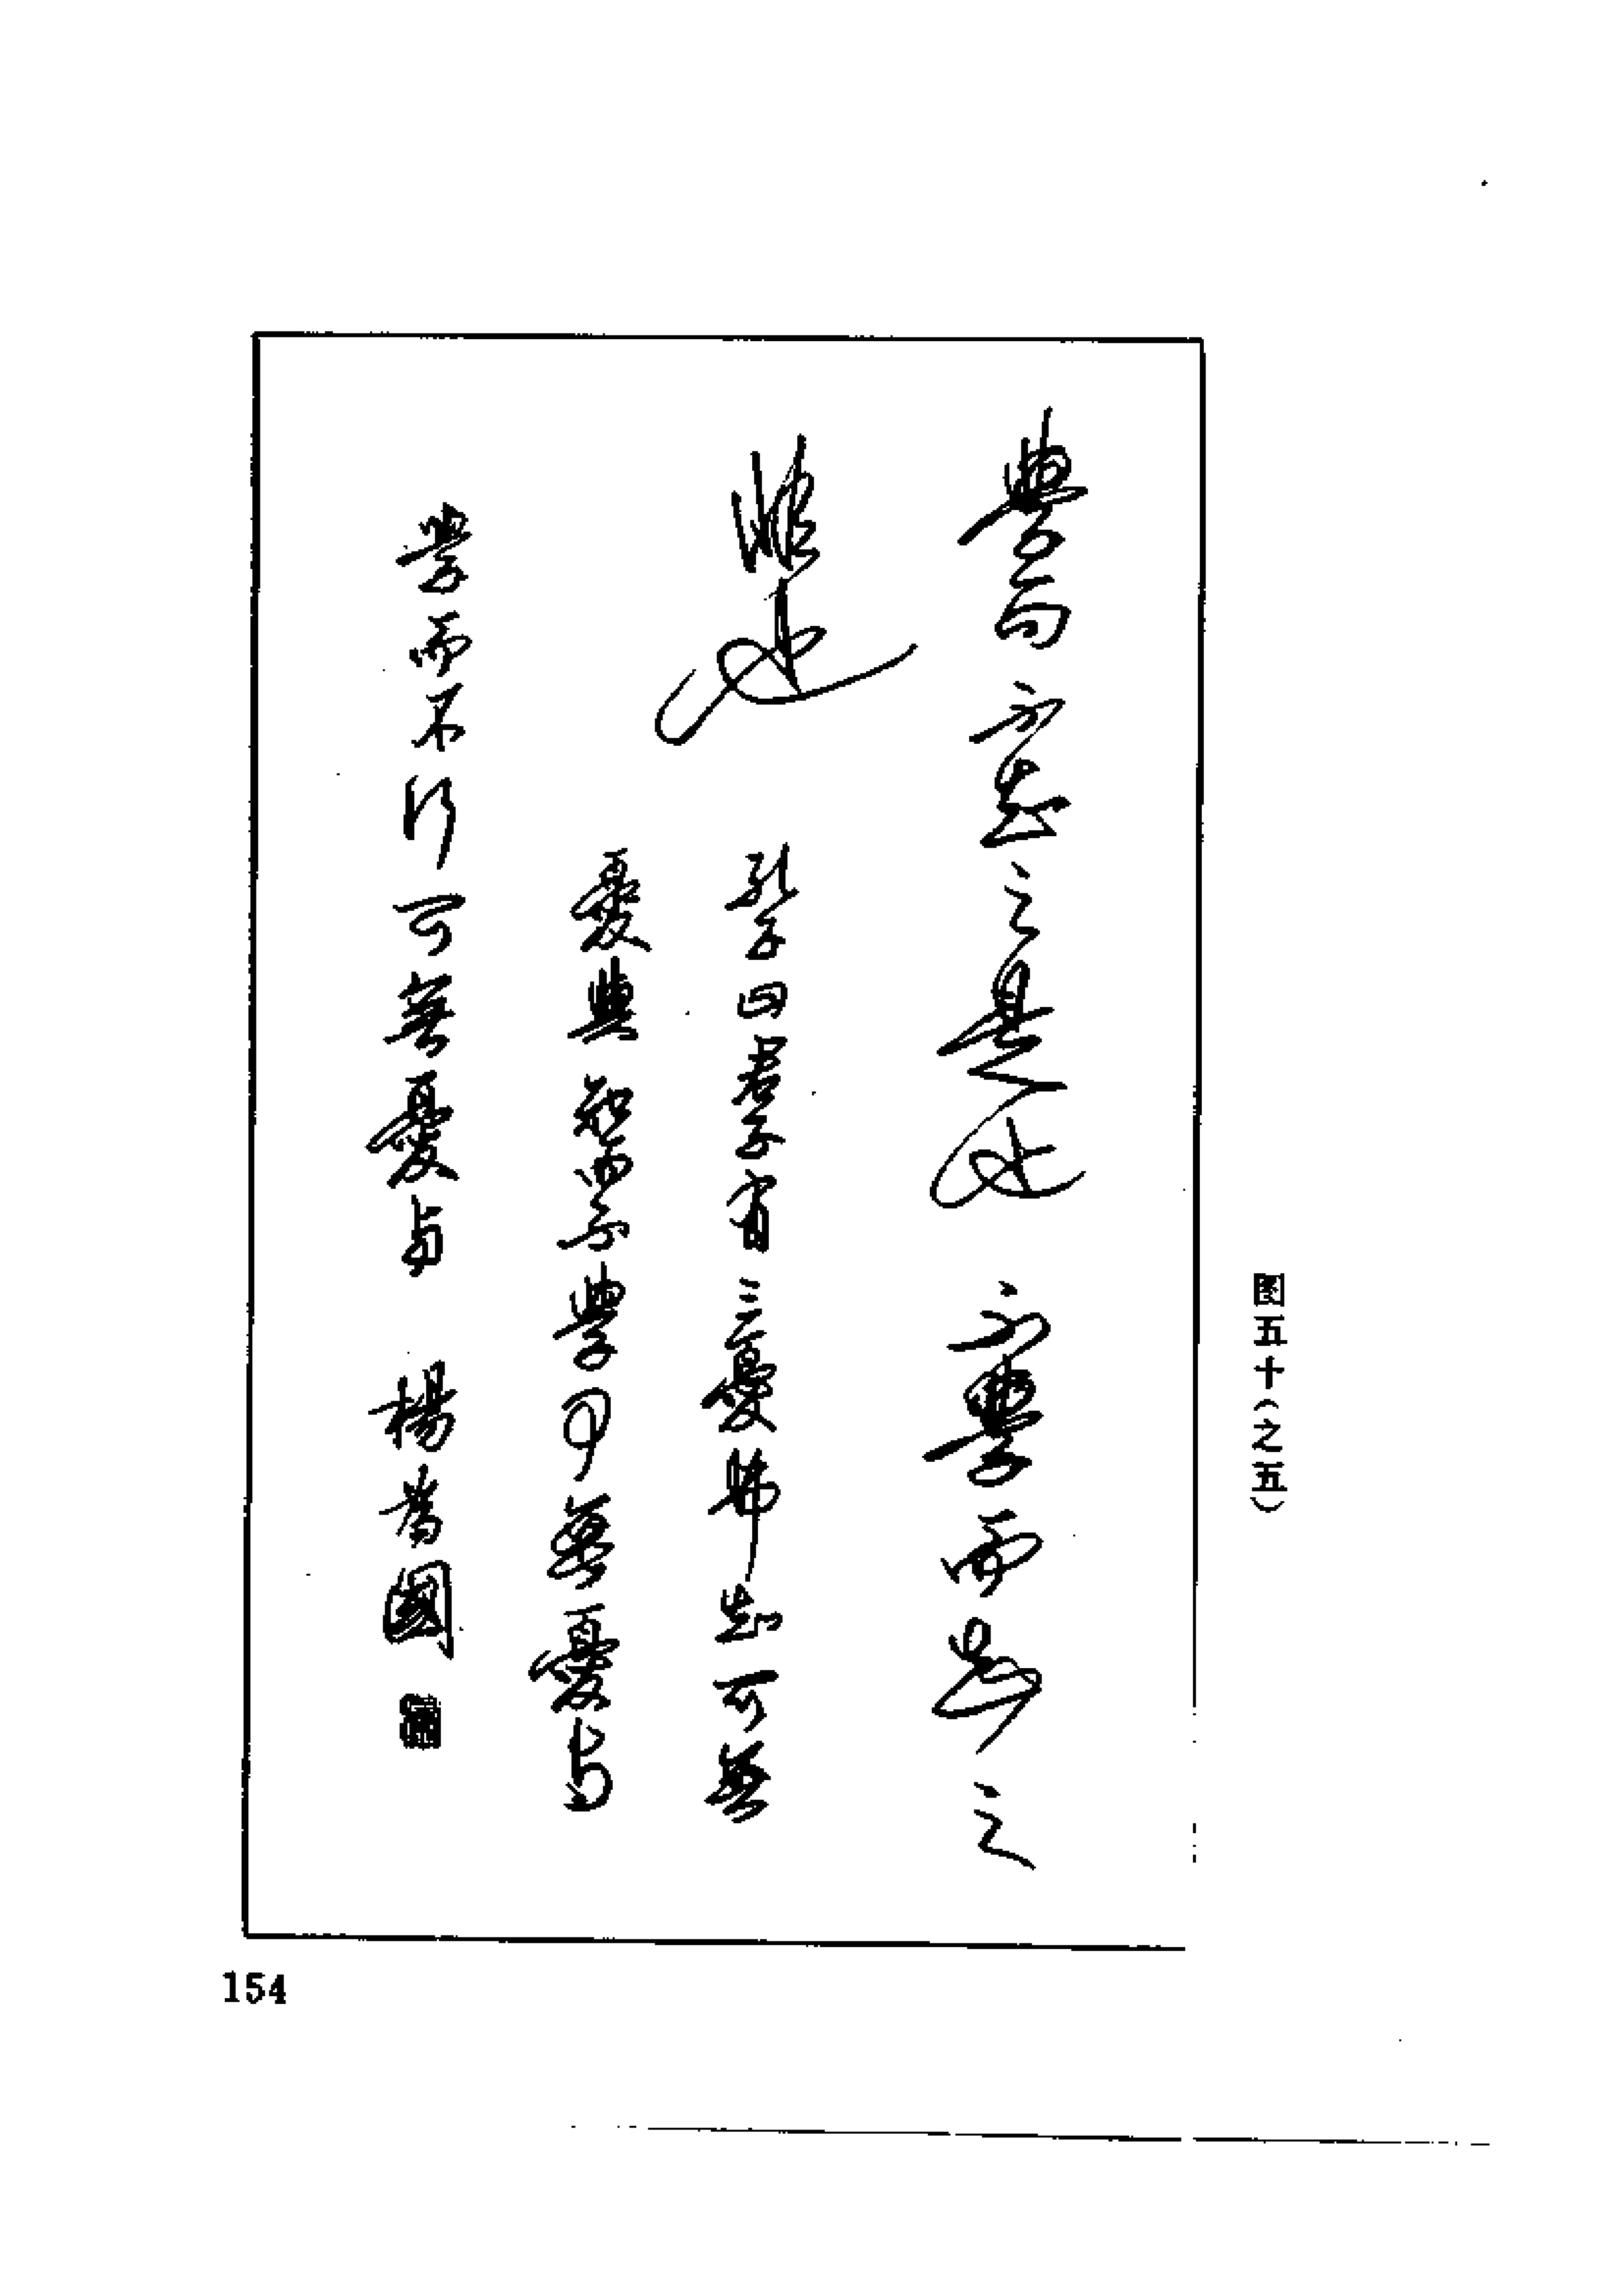 图五十(之五)
學方知之是也不學而知之
也
孔子曰君子有三憂弗知可無
憂與知而不學可無憂與
學而不行可無憂與 楊國
154